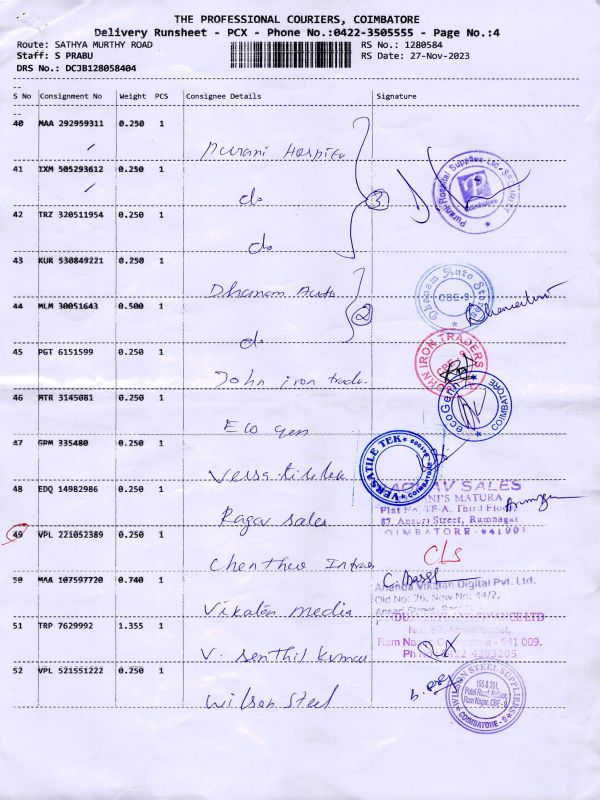 THE PROFESSIONAL COURIERS, COIMBATORE
Delivery Runsheet - PCX - Phone No.:0422-3505555 - Page No.:4
Route: SATHYA MURTHY ROAD RS No.: 1280584
Staff: S PRABU RS Date: 27-Nov-2023
DRS No.: DCJB128058404
S No Consignment No Weight PCS Consignee Details Signature
40 MAA 292959311 0.250 1
Purani Hospital
41 IXM 505293612 0.250 1
do
3
Purani Hospital Supplies Ltd. SECURITY
42 TRZ 320511954 0.250 1
do
43 KUR 530849221 0.250 1
Dhanam Auto
Dhanam Auto Stores CBE-9
44 MLM 30051643 0.500 1
do
2
45 PGT 6151599 0.250 1
John iron trade.
JOHN IRON TRADERS CBE-9
46 MTR 3145081 0.250 1
Eco gen
ecoGenn COIMBATORE
47 GPM 335480 0.250 1
VERSATILE TEK COIMBATORE
48 EDQ 14982986 0.250 1
Ragav sales
RAGAV SALES
Flat No. TF-A, Third Floor
87, Ansari Street, Ramnagar
COIMBATORE-641009
49 VPL 221052389 0.250 1
CLS
50 MAA 107597720 0.740 1
Vikatan media
Ananda Vikatan Digital Pvt. Ltd.
Old No: 76, New No: 44/2,
51 TRP 7629992 1.355 1
V. Senthil kumar
Ram Nagar, Coimbatore - 641 009.
52 VPL 521551222 0.250 1
Wilson Steel
WILSON STEEL SUPPLIERS
Ram Nagar, CBE-9
COIMBATORE - 9